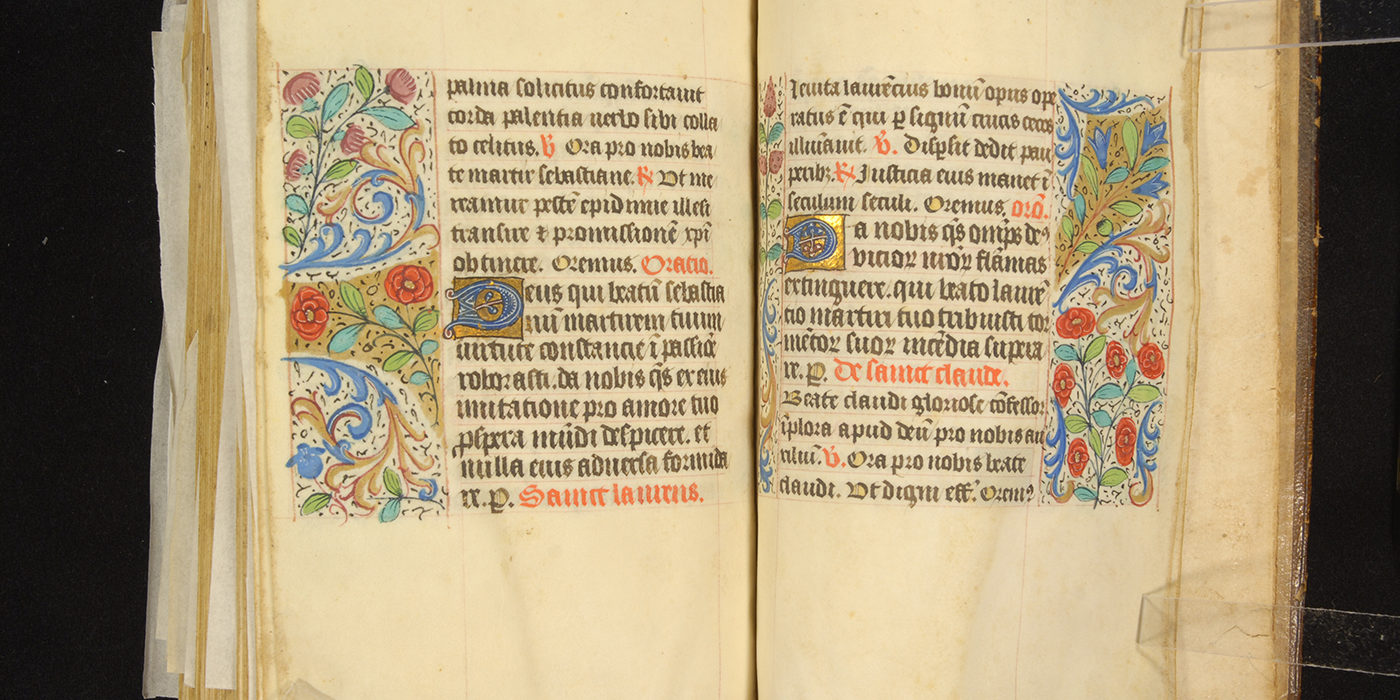 palma solicitus confortauit
corda palentia uerbo sibi colla
to celitus. ℣ Ora pro nobis bea
te martir sebastiane. ℟ Vt me
reamur pestē epidimie illesi
transire ⁊ promissionē xp̄i
obtinere. Oremus. Oratio.
Deus qui beatū sebastia
nū martirem tuum
uirtute constancie ī passiōe
roborasti. da nobis q̄s ex eius
imitatione pro amore tuo
ꝓspera mūdi despicere. et
nulla eius aduersa formida
re. P. Sainct laurens.
leuita laurēcius bonū opus ope
ratus ē qui ꝑ signū crucis cecos
illuīauit. ℣. Dispsit dedit pau
peribꝰ. ℟ Justicia eius manet ī
seculum seculi. Oremus. orō.
Da nobis q̄s omps deꝰ
vicioꝝ nr̄oꝝ flāmas
extinguere. qui beato laurē
cio martiri tuo tribuisti tor
mētoꝝ suoꝝ incēdia supera
re. P. De sainct claude.
Beate claudi gloriose cōfessor
īplora apud deū pro nobis au
xiliū. ℣. Ora pro nobis beate
claudi. Vt digni eff. Oremꝰ